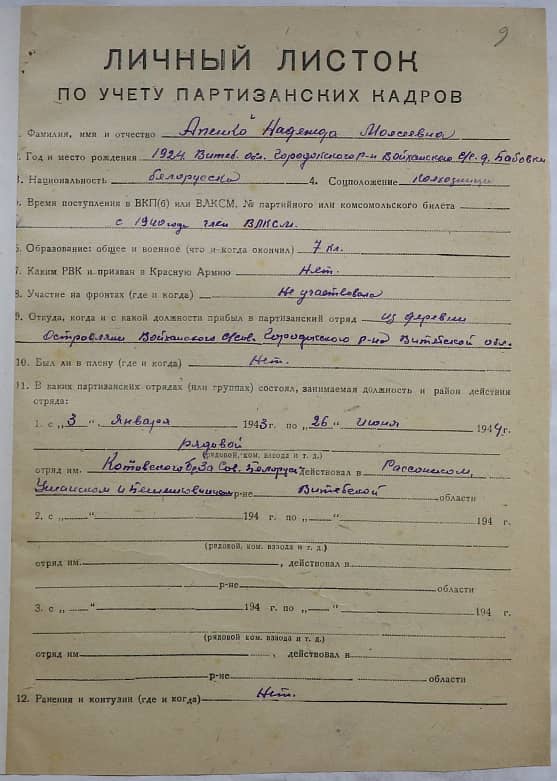 9
ЛИЧНЫЙ ЛИСТОК
ПО УЧЕТУ ПАРТИЗАНСКИХ КАДРОВ
1. Фамилия, имя и отчество Надежда Моисеевна
2. Год и место рождения 1924 Витеб. обл. Городокского р-н Войханского с/с. д. Бабовки
3. Национальность белоруска 4. Соцположение колхозница
5. Время поступления в ВКП(б) или ВЛКСМ, № партийного или комсомольского билета
с 1940 года член ВЛКСМ.
6. Образование: общее и военное (что и когда окончил) 7 кл.
7. Каким РВК и призван в Красную Армию Нет.
8. Участие на фронтах (где и когда) Не участвовала
9. Откуда, когда и с какой должности прибыл в партизанский отряд из деревни
Войханского с/сов. Городокского р-на Витебской обл.
10. Был ли в плену (где и когда) Нет.
11. В каких партизанских отрядах (или группах) состоял, занимаемая должность и район действия
отряда:
1. с „3“ Января 1943 г. по „26“ июня 1944 г.
рядовой
(рядовой, ком. взвода и т. д.)
отряд им. Котовского бр. За Сов. Белорус. действовал в Россонском,
Ушачском и р-не Витебской области
2. с „ “ 194 г. по „ “ 194 г.
(рядовой, ком. взвода и т. д.)
отряд им. , действовал в
р-не области
3. с „ “ 194 г. по „ “ 194 г.
(рядовой ком. взвода и т. д.)
отряд им , действовал в
р-не области
12. Ранения и контузии (где и когда) Нет.